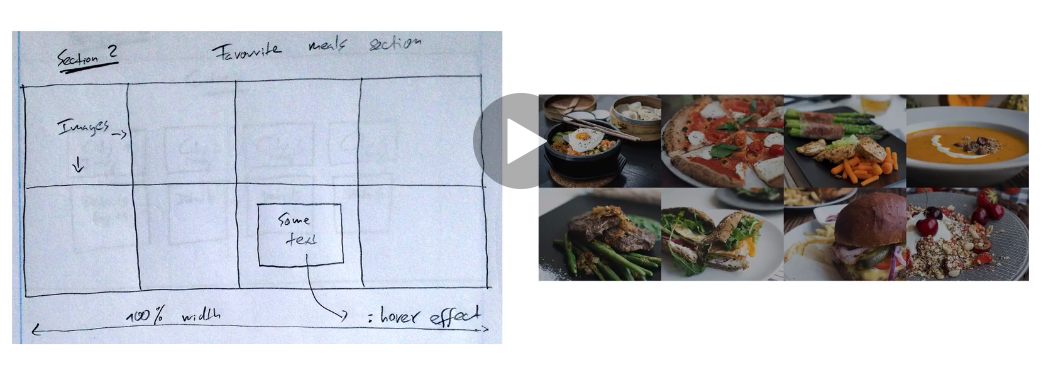 Section 2
Favourite meals section
Images →
↓
Some
text
100% width
: hover effect